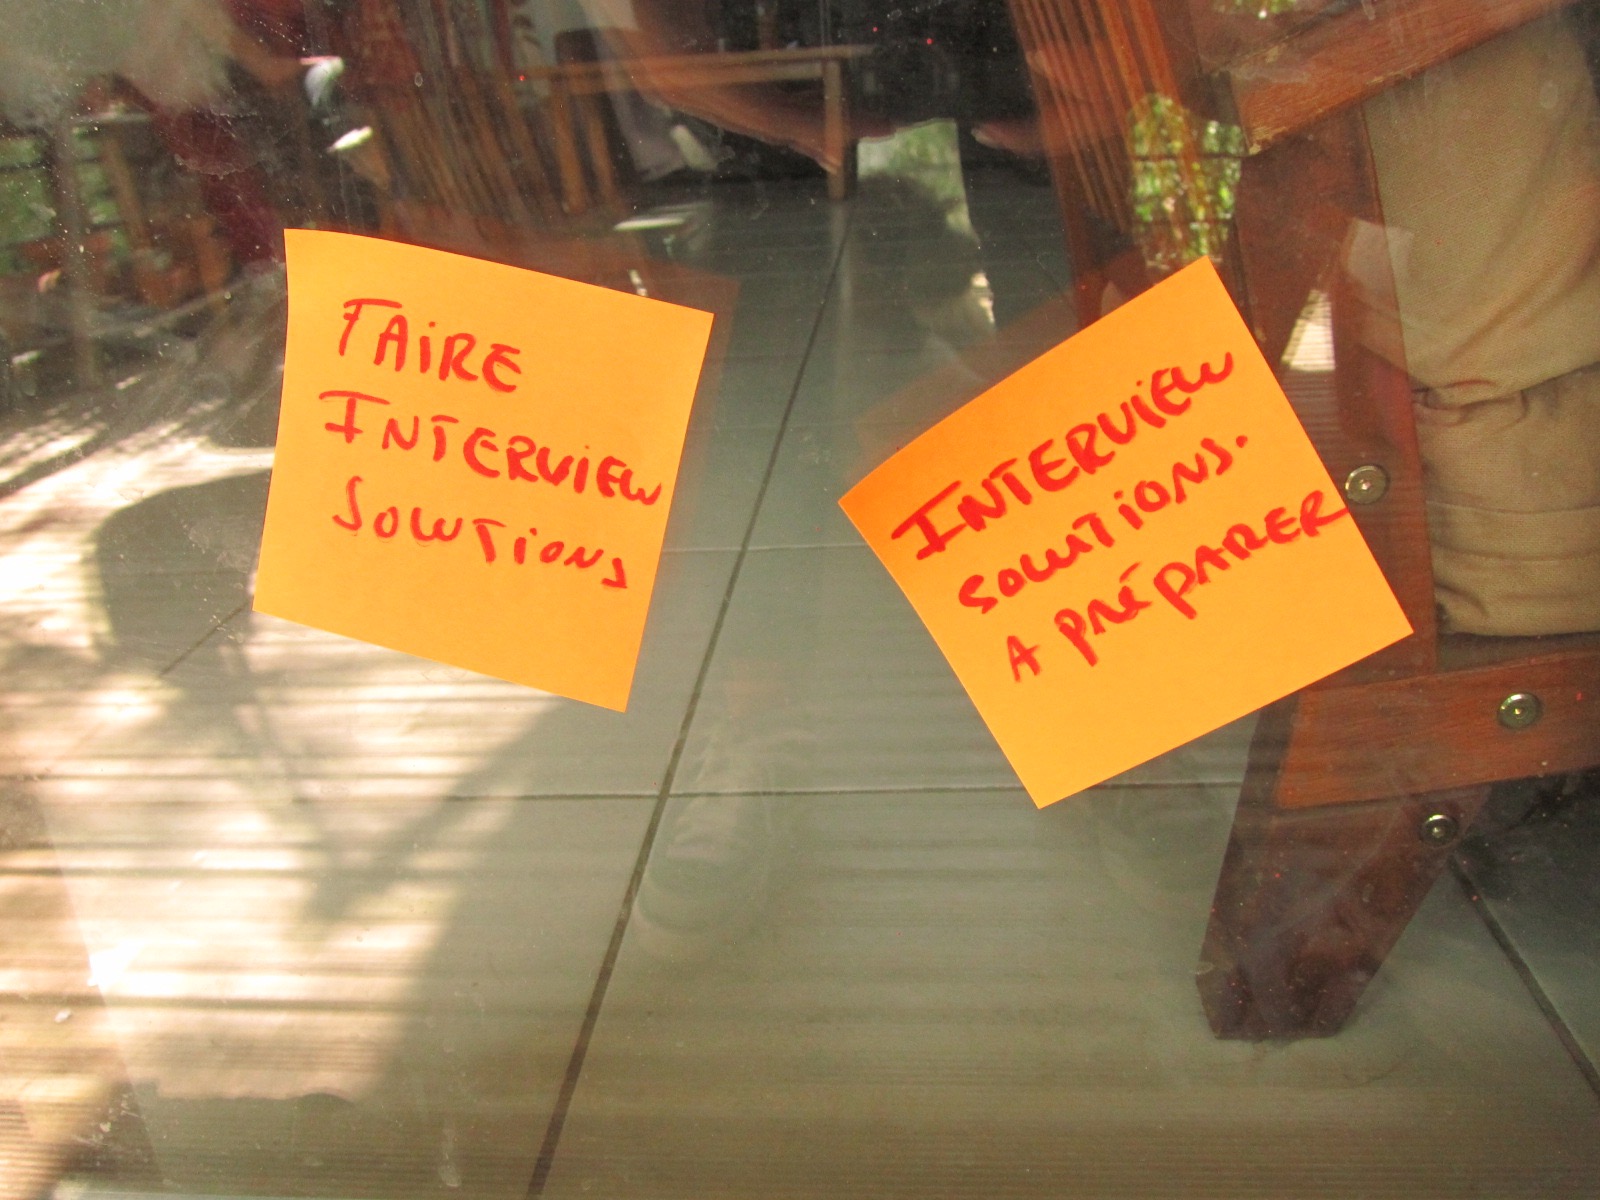 FAIRE
INTERVIEW
SOLUTIONS
INTERVIEW
SOLUTIONS.
A PRÉPARER